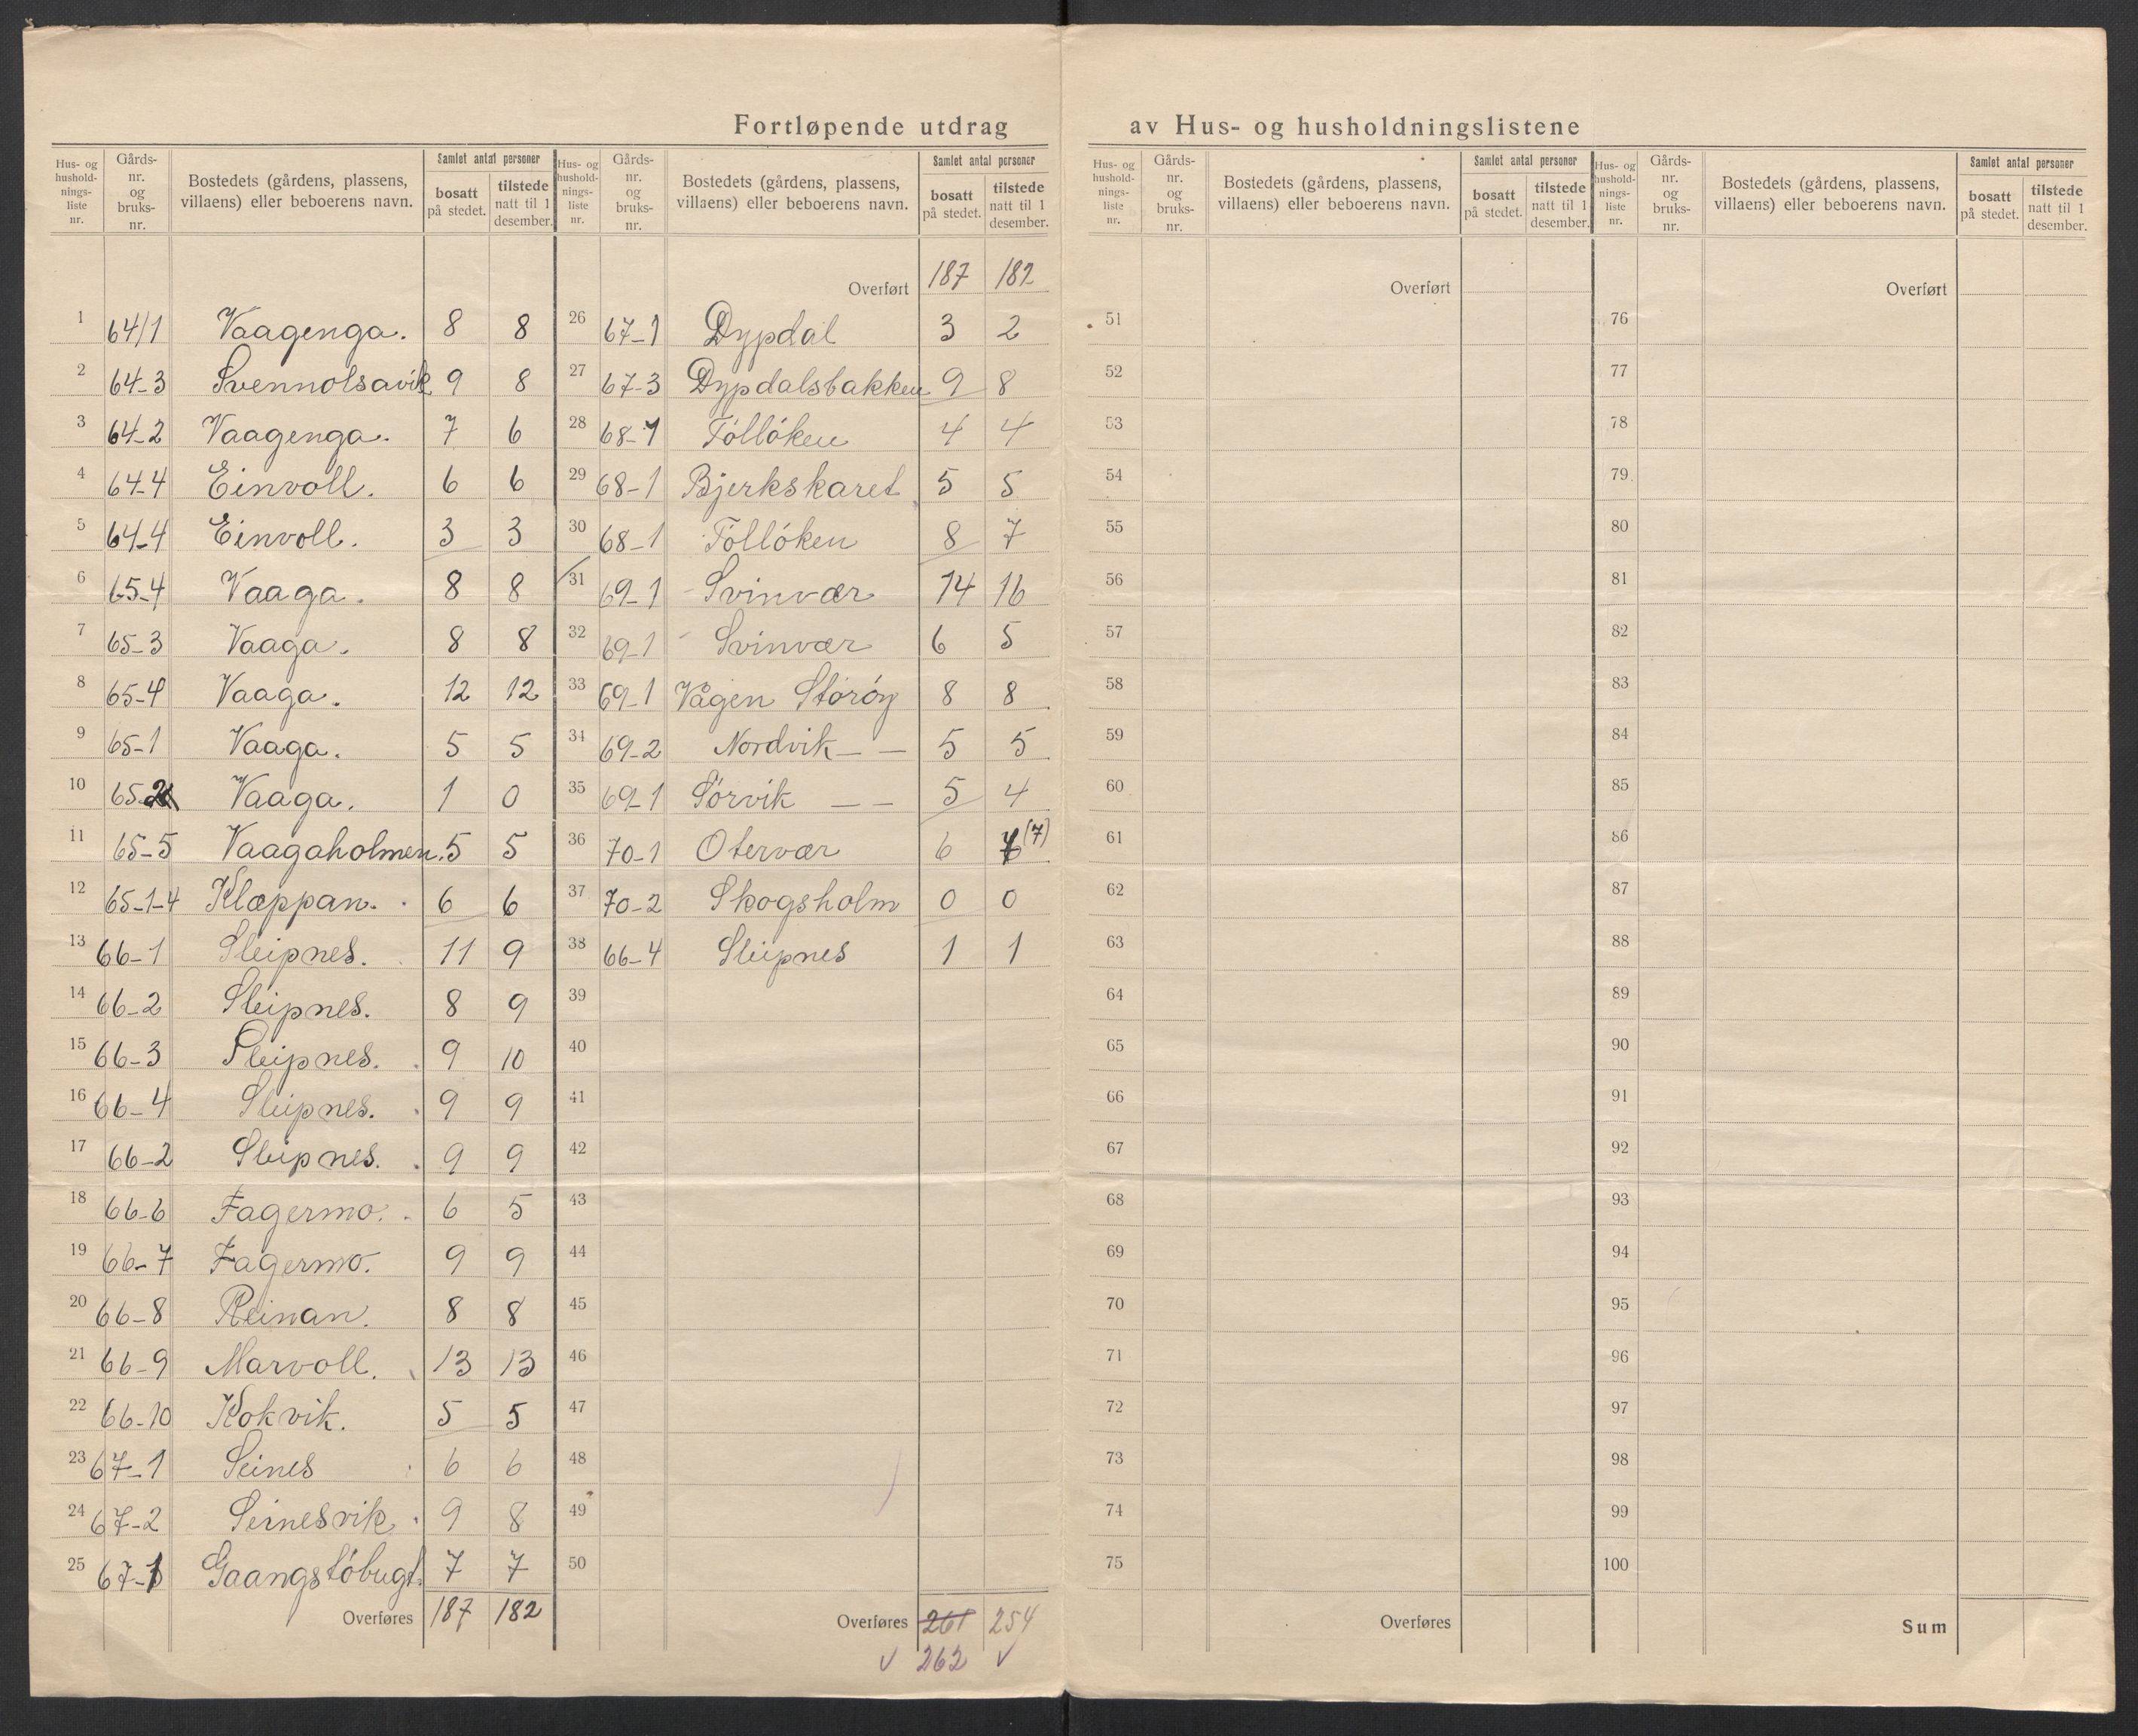 Fortløpende utdrag av Hus- og husholdningslistene
Hus- og hushold-nings-liste nr. | Gårds-nr. og bruks-nr. | Bostedets (gårdens, plassens, villaens) eller beboerens navn. | Samlet antal personer | bosatt på stedet. | tilstede natt til 1 desember.
1 64/1 Vaagenga. 8 8
2 64-3 Svennolsavik 9 8
3 64-2 Vaagenga. 7 6
4 64-4 Einvoll. 6 6
5 64-4 Einvoll. 3 3
6 65-4 Vaaga. 8 8
7 65-3 Vaaga. 8 8
8 65-4 Vaaga. 12 12
9 65-1 Vaaga. 5 5
10 65-2 Vaaga. 1 0
11 65-5 Vaagaholmen. 5 5
12 65-1-4 Klæppan. 6 6
13 66-1 Sleipnes. 11 9
14 66-2 Sleipnes. 8 9
15 66-3 Sleipnes. 9 10
16 66-4 Sleipnes. 9 9
17 66-2 Sleipnes. 9 9
18 66-6 Fagermo. 6 5
19 66-7 Fagermo. 9 9
20 66-8 Reinan. 8 8
21 66-9 Marvoll. 13 13
22 66-10 Kokvik. 5 5
23 67-1 Seines 6 6
24 67-2 Seinesvik 9 8
25 67-1 Gaangstøbugt. 7 7
Overføres 187 182
Hus- og hushold-nings-liste nr. | Gårds-nr. og bruks-nr. | Bostedets (gårdens, plassens, villaens) eller beboerens navn. | Samlet antal personer | bosatt på stedet. | tilstede natt til 1 desember.
Overført 187 182
26 67-1 Dypdal 3 2
27 67-3 Dypdalsbakken 9 8
28 68-1 Tólløken 4 4
29 68-1 Bjerkskaret 5 5
30 68-1 Tólløken 8 7
31 69-1 Svinvær 14 16
32 69-1 Svinvær 6 5
33 69-1 Vågen Storøy 8 8
34 69-2 Nordvik — — 5 5
35 69-1 Sørvik — — 5 4
36 70-1 Otervær 6 (7)
37 70-2 Skogsholm 0 0
38 66-4 Sleipnes 1 1
39
40
41
42
43
44
45
46
47
48
49
50
Overføres 261 254
262
Hus- og hushold-nings-liste nr. | Gårds-nr. og bruks-nr. | Bostedets (gårdens, plassens, villaens) eller beboerens navn. | Samlet antal personer | bosatt på stedet. | tilstede natt til 1 desember.
Overført
51
52
53
54
55
56
57
58
59
60
61
62
63
64
65
66
67
68
69
70
71
72
73
74
75
Overføres
Hus- og hushold-nings-liste nr. | Gårds-nr. og bruks-nr. | Bostedets (gårdens, plassens, villaens) eller beboerens navn. | Samlet antal personer | bosatt på stedet. | tilstede natt til 1 desember.
Overført
76
77
78
79
80
81
82
83
84
85
86
87
88
89
90
91
92
93
94
95
96
97
98
99
100
Sum